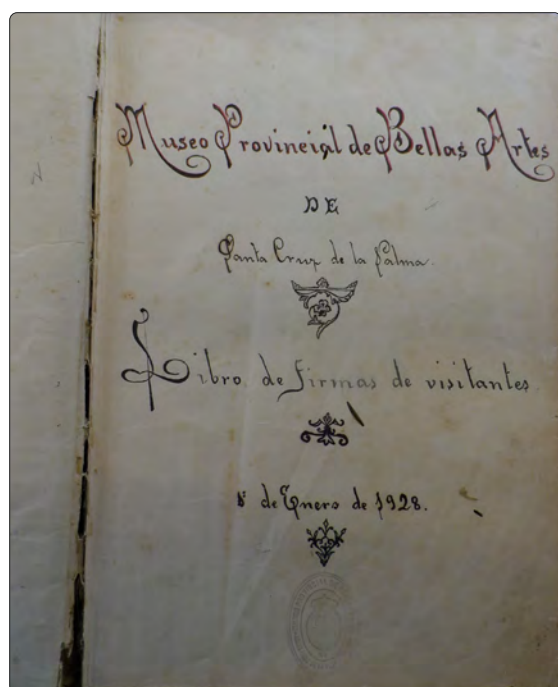 Museo Provincial de Bellas Artes
DE
Santa Cruz de la Palma.
Libro de firmas de visitantes
de Enero de 1928.